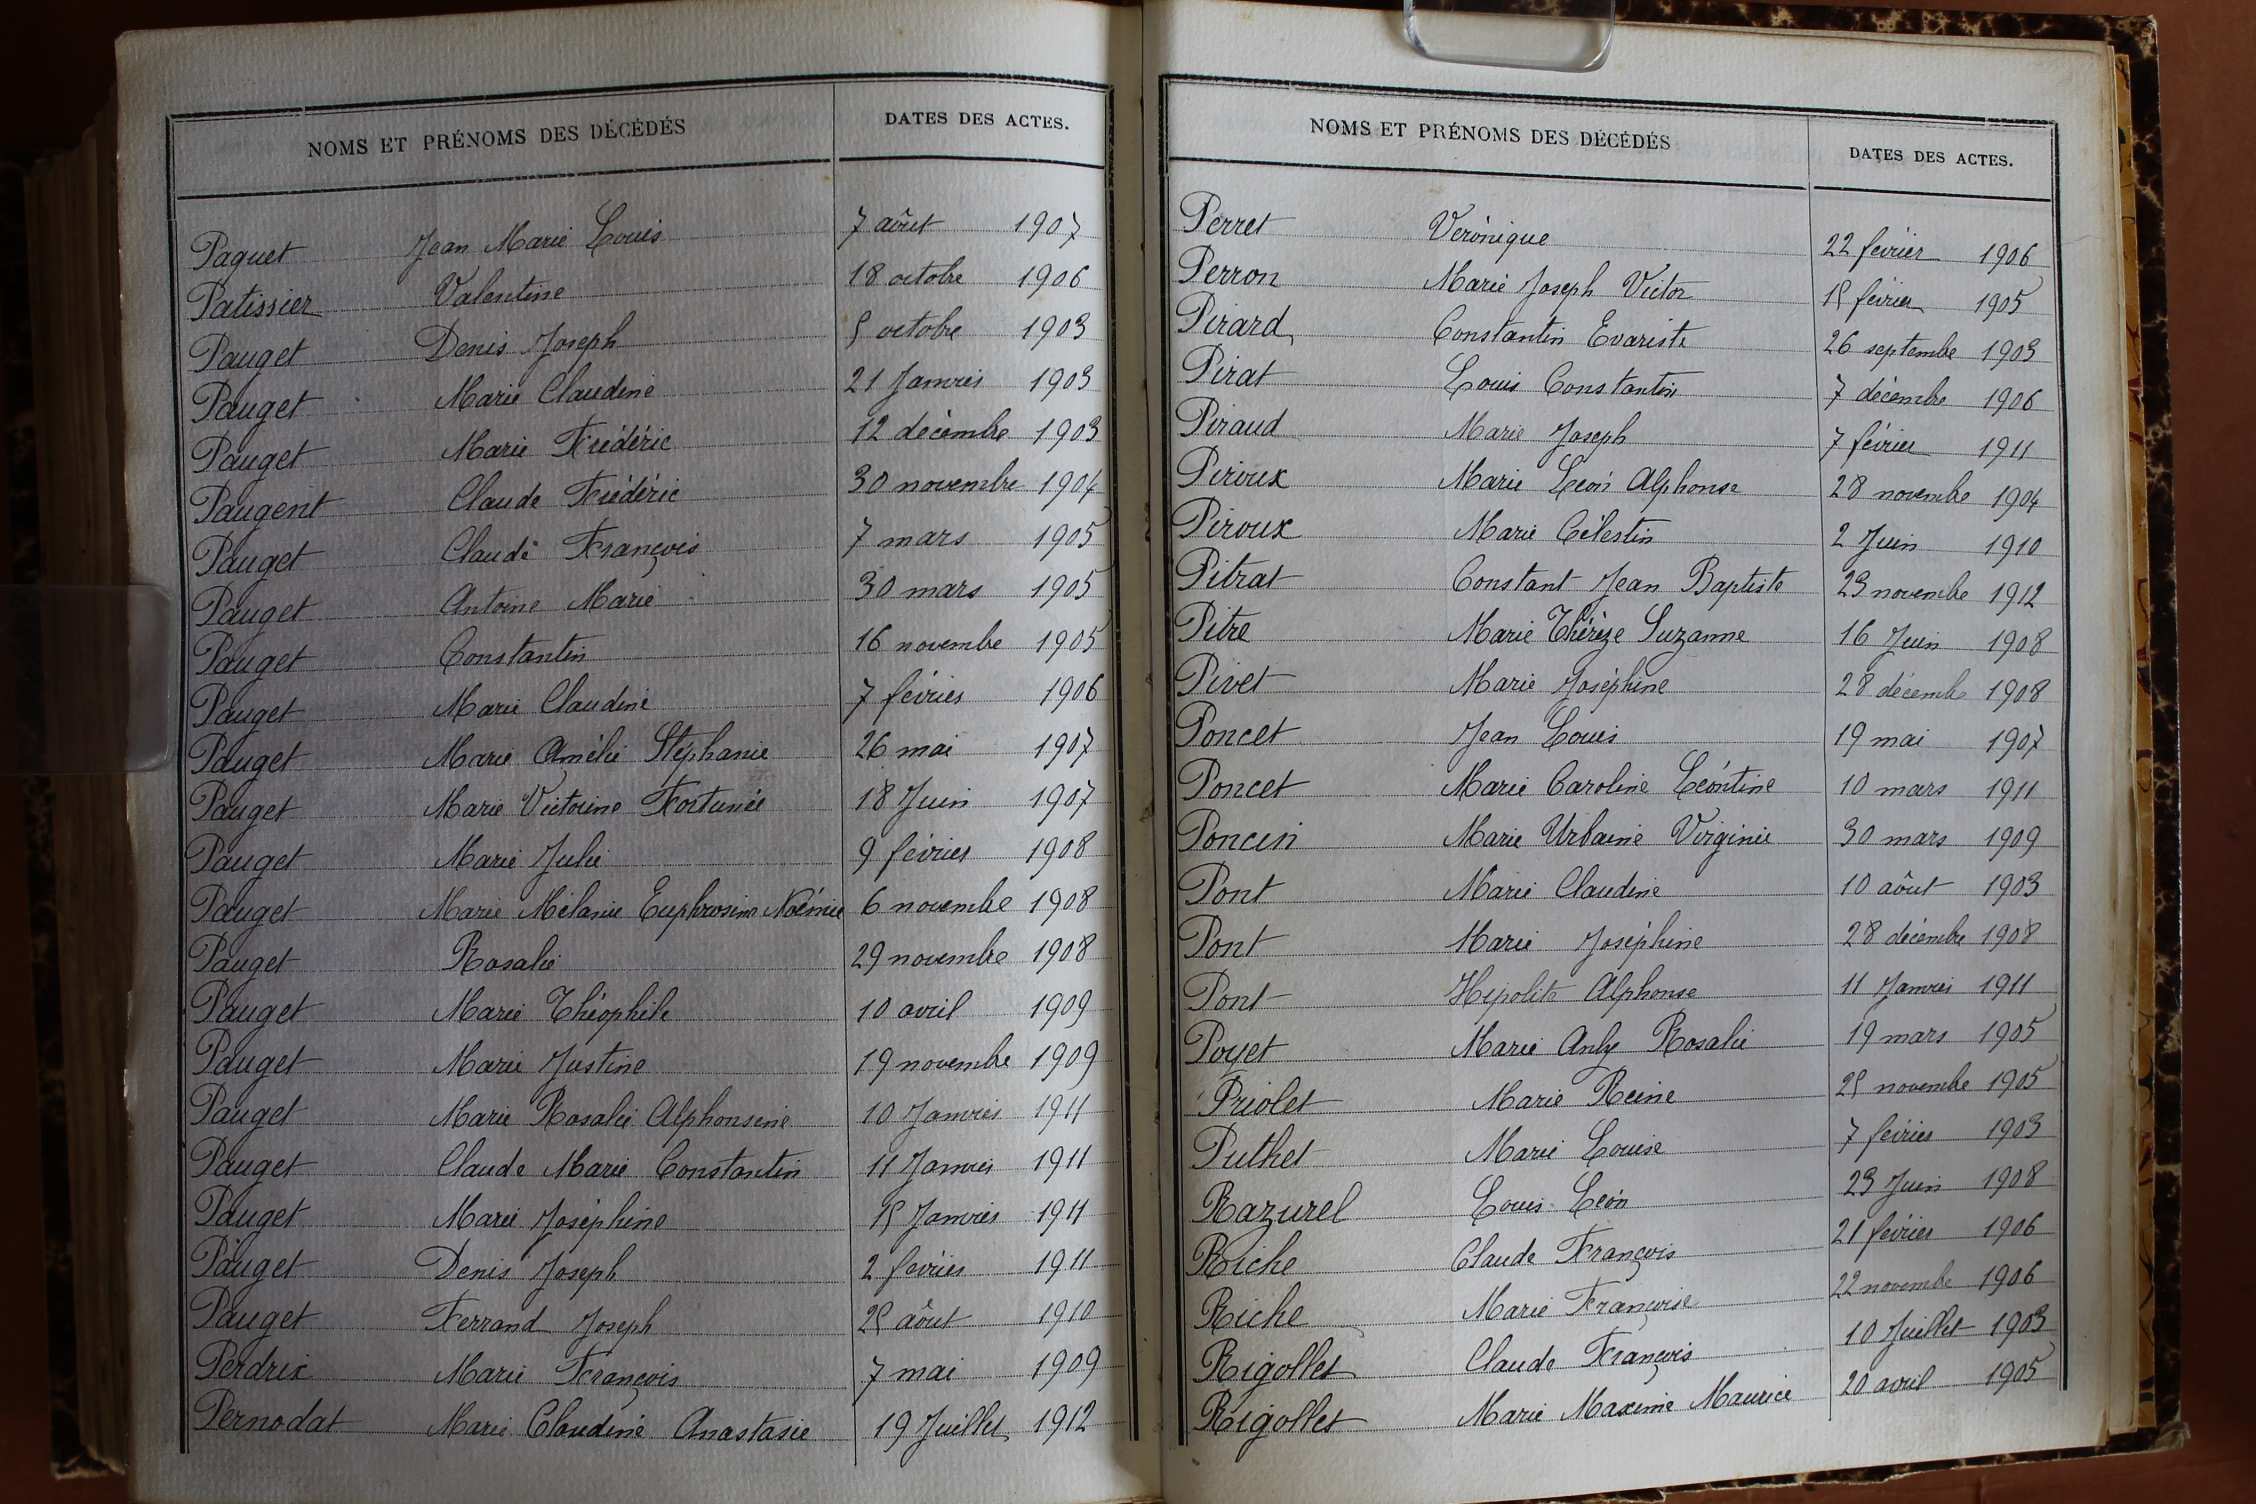 NOMS ET PRÉNOMS DES DÉCÉDÉS DATES DES ACTES.
Paquet Jean Marie Louis 7 aôut 1907
Patissier Valentine 18 octobre 1906
Pauget Denis Joseph 5 octobre 1903
Pauget Marie Claudine 21 Janvier 1903
Pauget Marie Frédéric 12 décembre 1903
Paugent Claude Frédéric 30 novembre 1904
Pauget Claude François 7 mars 1905
Pauget Antoine Marie 30 mars 1905
Pauget Constantin 16 novembre 1905
Pauget Marie Claudine 7 février 1906
Pauget Marie Amélie Stéphanie 26 mai 1907
Pauget Marie Victorine Fortunée 18 Juin 1907
Pauget Marie Julie 9 février 1908
Pauget Marie Mélanie Euphrosine Noémie 6 novembre 1908
Pauget Rosalie 29 novembre 1908
Pauget Marie Théophile 10 avril 1909
Pauget Marie Justine 19 novembre 1909
Pauget Marie Rosalie Alphonsine 10 Janvier 1911
Pauget Claude Marie Constantin 11 Janvier 1911
Pauget Marie Joséphine 15 Janvier 1911
Pauget Denis Joseph 2 février 1911
Pauget Ferrand Joseph 25 aôut 1910
Perdrix Marie François 7 mai 1909
Pernodat Marie Claudine Anastasie 19 Juillet 1912
NOMS ET PRÉNOMS DES DÉCÉDÉS DATES DES ACTES.
Perret Véronique 22 février 1906
Perron Marie Joseph Victor 15 février 1905
Pirard Constantin Evariste 26 septembre 1903
Pirat Louis Constantin 7 décembre 1906
Piraud Marie Joseph 7 février 1911
Piroux Marie Léon Alphonse 28 novembre 1904
Piroux Marie Célestin 2 Juin 1910
Pitrat Constant Jean Baptiste 23 novembre 1912
Pitre Marie Thérèze Suzanne 16 Juin 1908
Pivet Marie Joséphine 28 décembre 1908
Poncet Jean Louis 19 mai 1907
Poncet Marie Caroline Léontine 10 mars 1911
Poncin Marie Urbaine Virginie 30 mars 1909
Pont Marie Claudine 10 aôut 1903
Pont Marie Joséphine 28 décembre 1908
Pont Hipolite Alphonse 11 Janvier 1911
Poyet Marie Rosalie 19 mars 1905
Priolet Marie Reine 25 novembre 1905
Puthet Marie Louise 7 février 1903
Razurel Louis Léon 23 Juin 1908
Riche Claude François 21 février 1906
Riche Marie Françoise 22 novembre 1906
Rigollet Claude François 10 Juillet 1903
Rigollet Marie Maxime Maurice 20 avril 1905